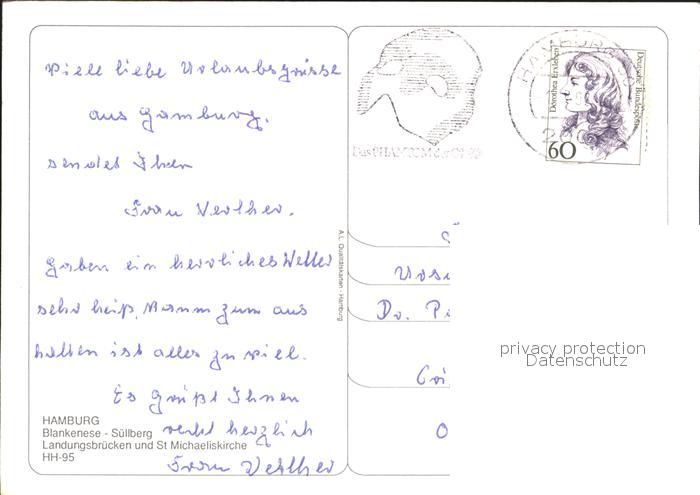 viele liebe Urlaubsgrüsse
aus Hamburg.
sendet Ihnen
Frau
Haben ein herrliches Wetter
sehr heiß, kaum zum aus
halten ist alles zu viel.
Es grüßt Ihnen
recht herzlich
Frau
HAMBURG
Blankenese - Süllberg
Landungsbrücken und St Michaeliskirche
HH-95
A.L. Qualitätskarten - Hamburg
Das PHANTOM der OPER
HAMBURG
Dorothea Erxleben
Deutsche Bundespost
60
Dr.
privacy protection
Datenschutz